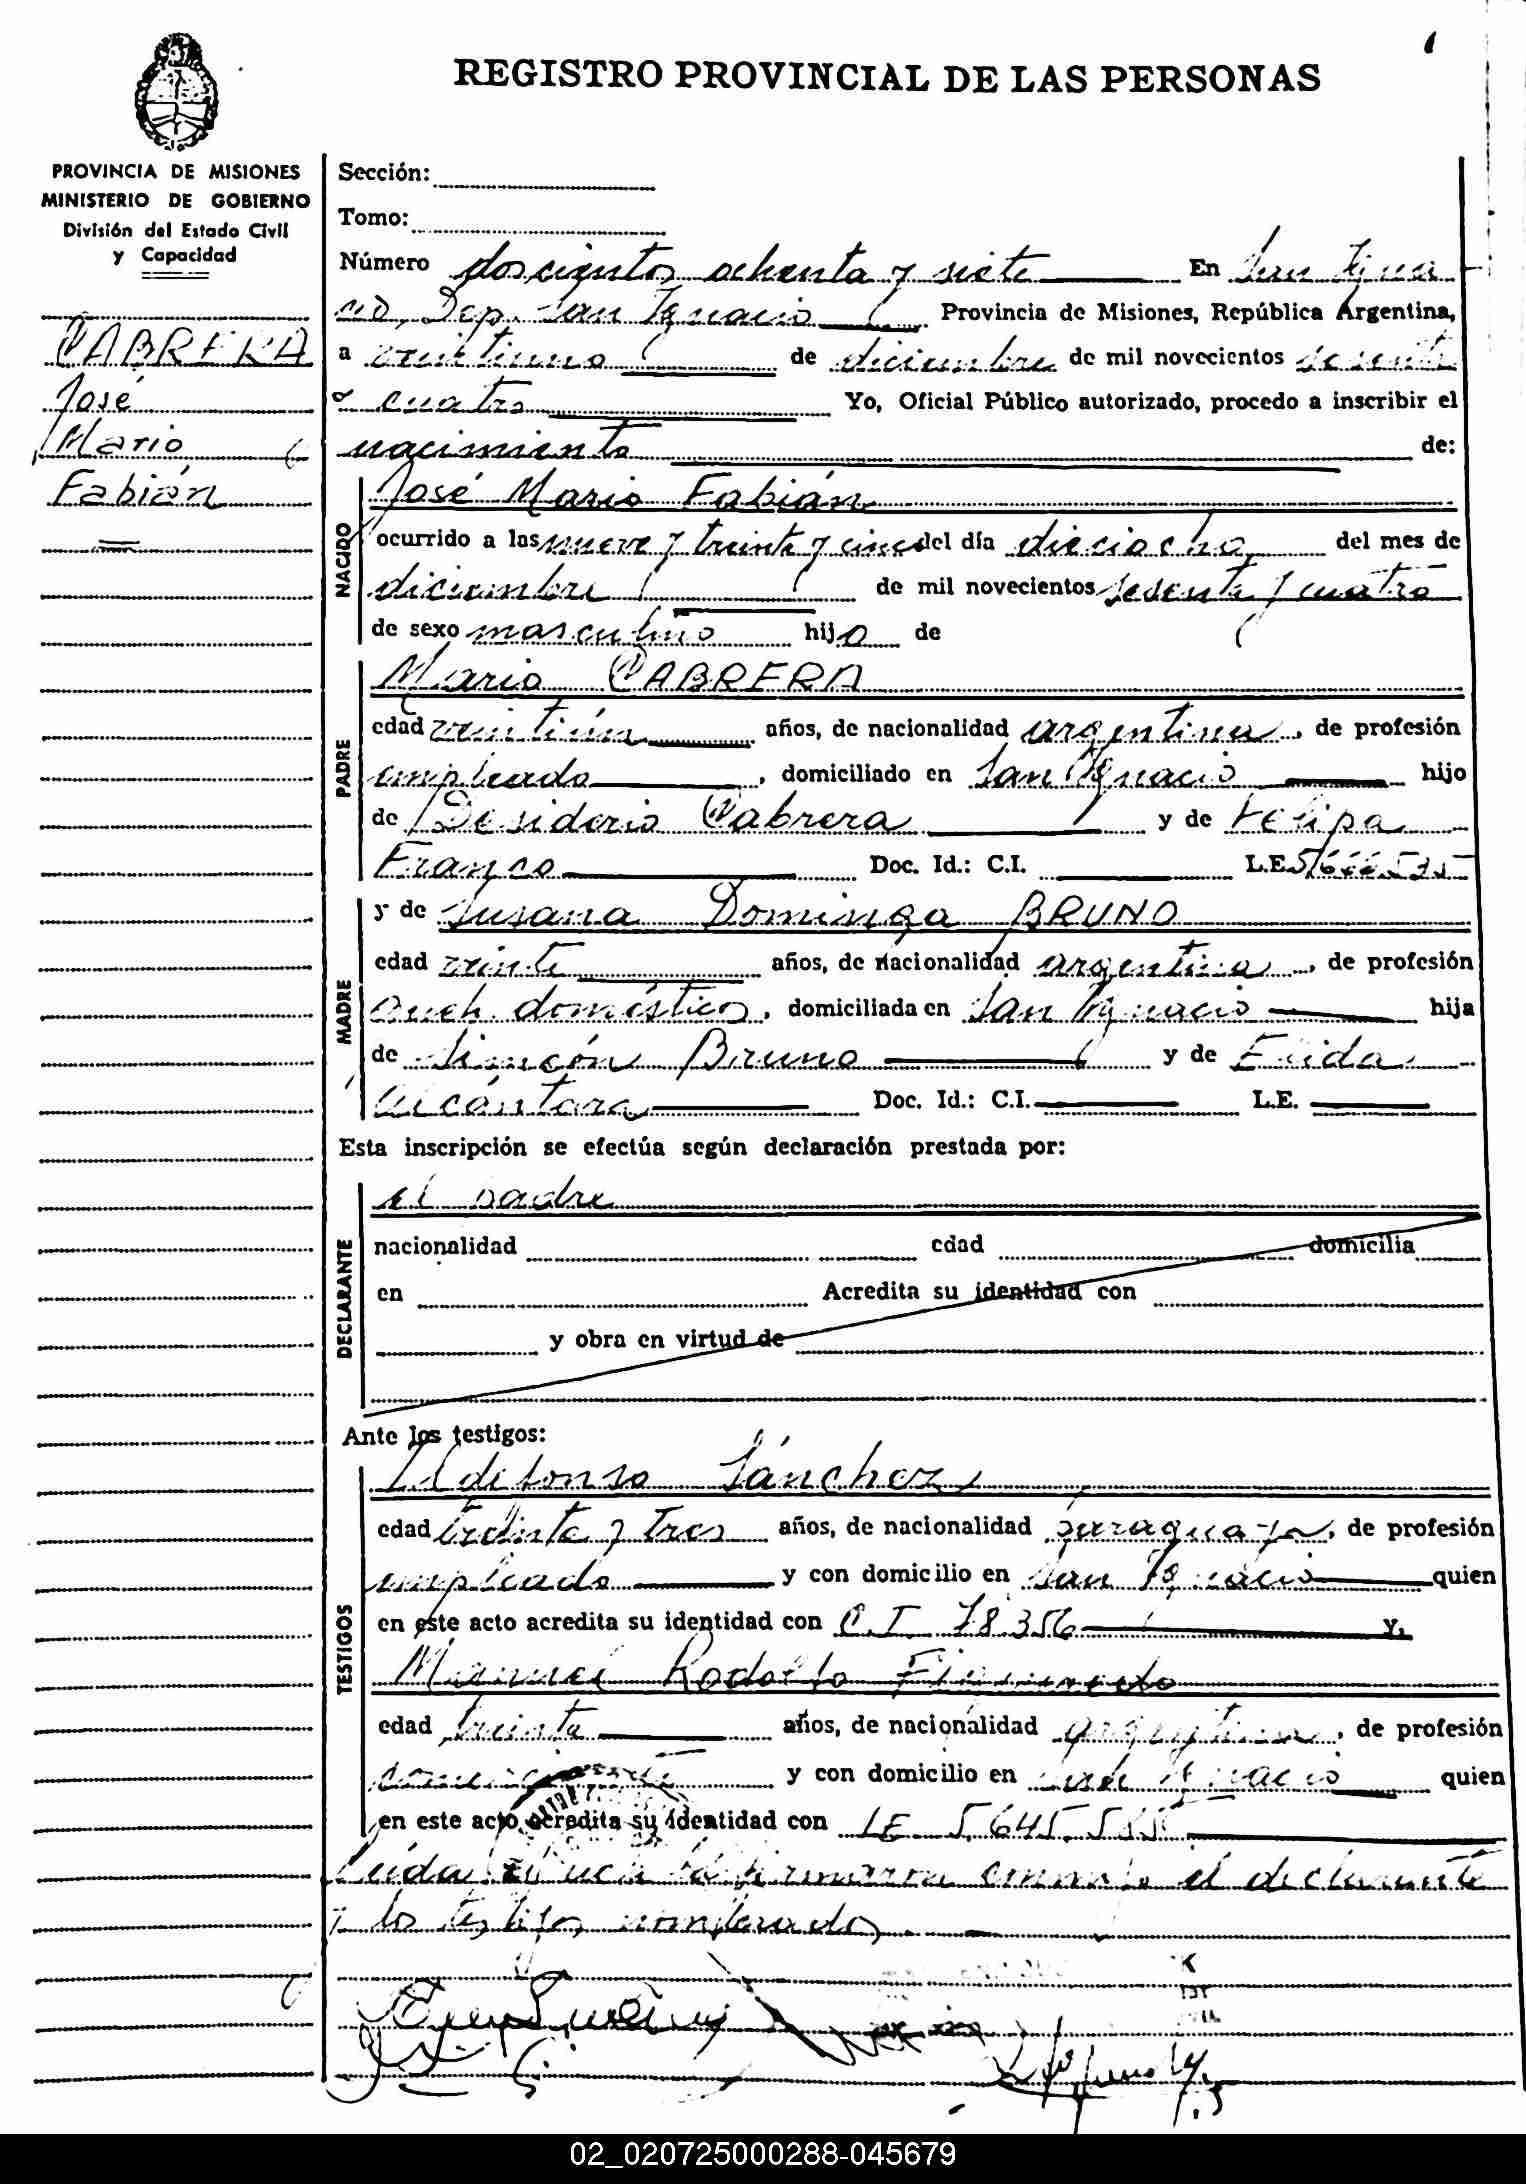 REGISTRO PROVINCIAL DE LAS PERSONAS
PROVINCIA DE MISIONES
MINISTERIO DE GOBIERNO
División del Estado Civil
y Capacidad
CABRERA
José
Mario
Fabián
Sección:
Tomo:
Número doscientos ochenta y siete En San Igna
cio, Dep. San Ignacio Provincia de Misiones, República Argentina,
a veintiuno de diciembre de mil novecientos sesenta
y cuatro Yo, Oficial Público autorizado, procedo a inscribir el
nacimiento de:
NACIDO
José Mario Fabián
ocurrido a las nueve y treinta y cinco del día dieciocho del mes de
diciembre de mil novecientos sesenta y cuatro
de sexo masculino hijo de
PADRE
Mario CABRERA
edad veintiún años, de nacionalidad argentina, de profesión
empleado, domiciliado en San Ignacio hijo
de Desiderio Cabrera y de Felipa
Franco Doc. Id.: C.I. L.E.
MADRE
y de Susana Dominga BRUNO
edad veinte años, de nacionalidad argentina, de profesión
queh. doméstico, domiciliada en San Ignacio hija
de Simeón Bruno y de Elida
Alcántara Doc. Id.: C.I. L.E.
Esta inscripción se efectúa según declaración prestada por:
DECLARANTE
el padre
nacionalidad edad domicilia
en Acredita su identidad con
y obra en virtud de
Ante los testigos:
TESTIGOS
Ildefonso Sánchez
edad treinta y tres años, de nacionalidad paraguaya, de profesión
empleado y con domicilio en San Ignacio quien
en este acto acredita su identidad con C.I. 78.356 y,
Manuel Rodolfo
edad treinta años, de nacionalidad argentina, de profesión
comerciante y con domicilio en San Ignacio quien
en este acto acredita su identidad con LE 5.645.555
Leída el acta la firmaron conmigo el declarante
y los testigos nombrados.
02_020725000288-045679